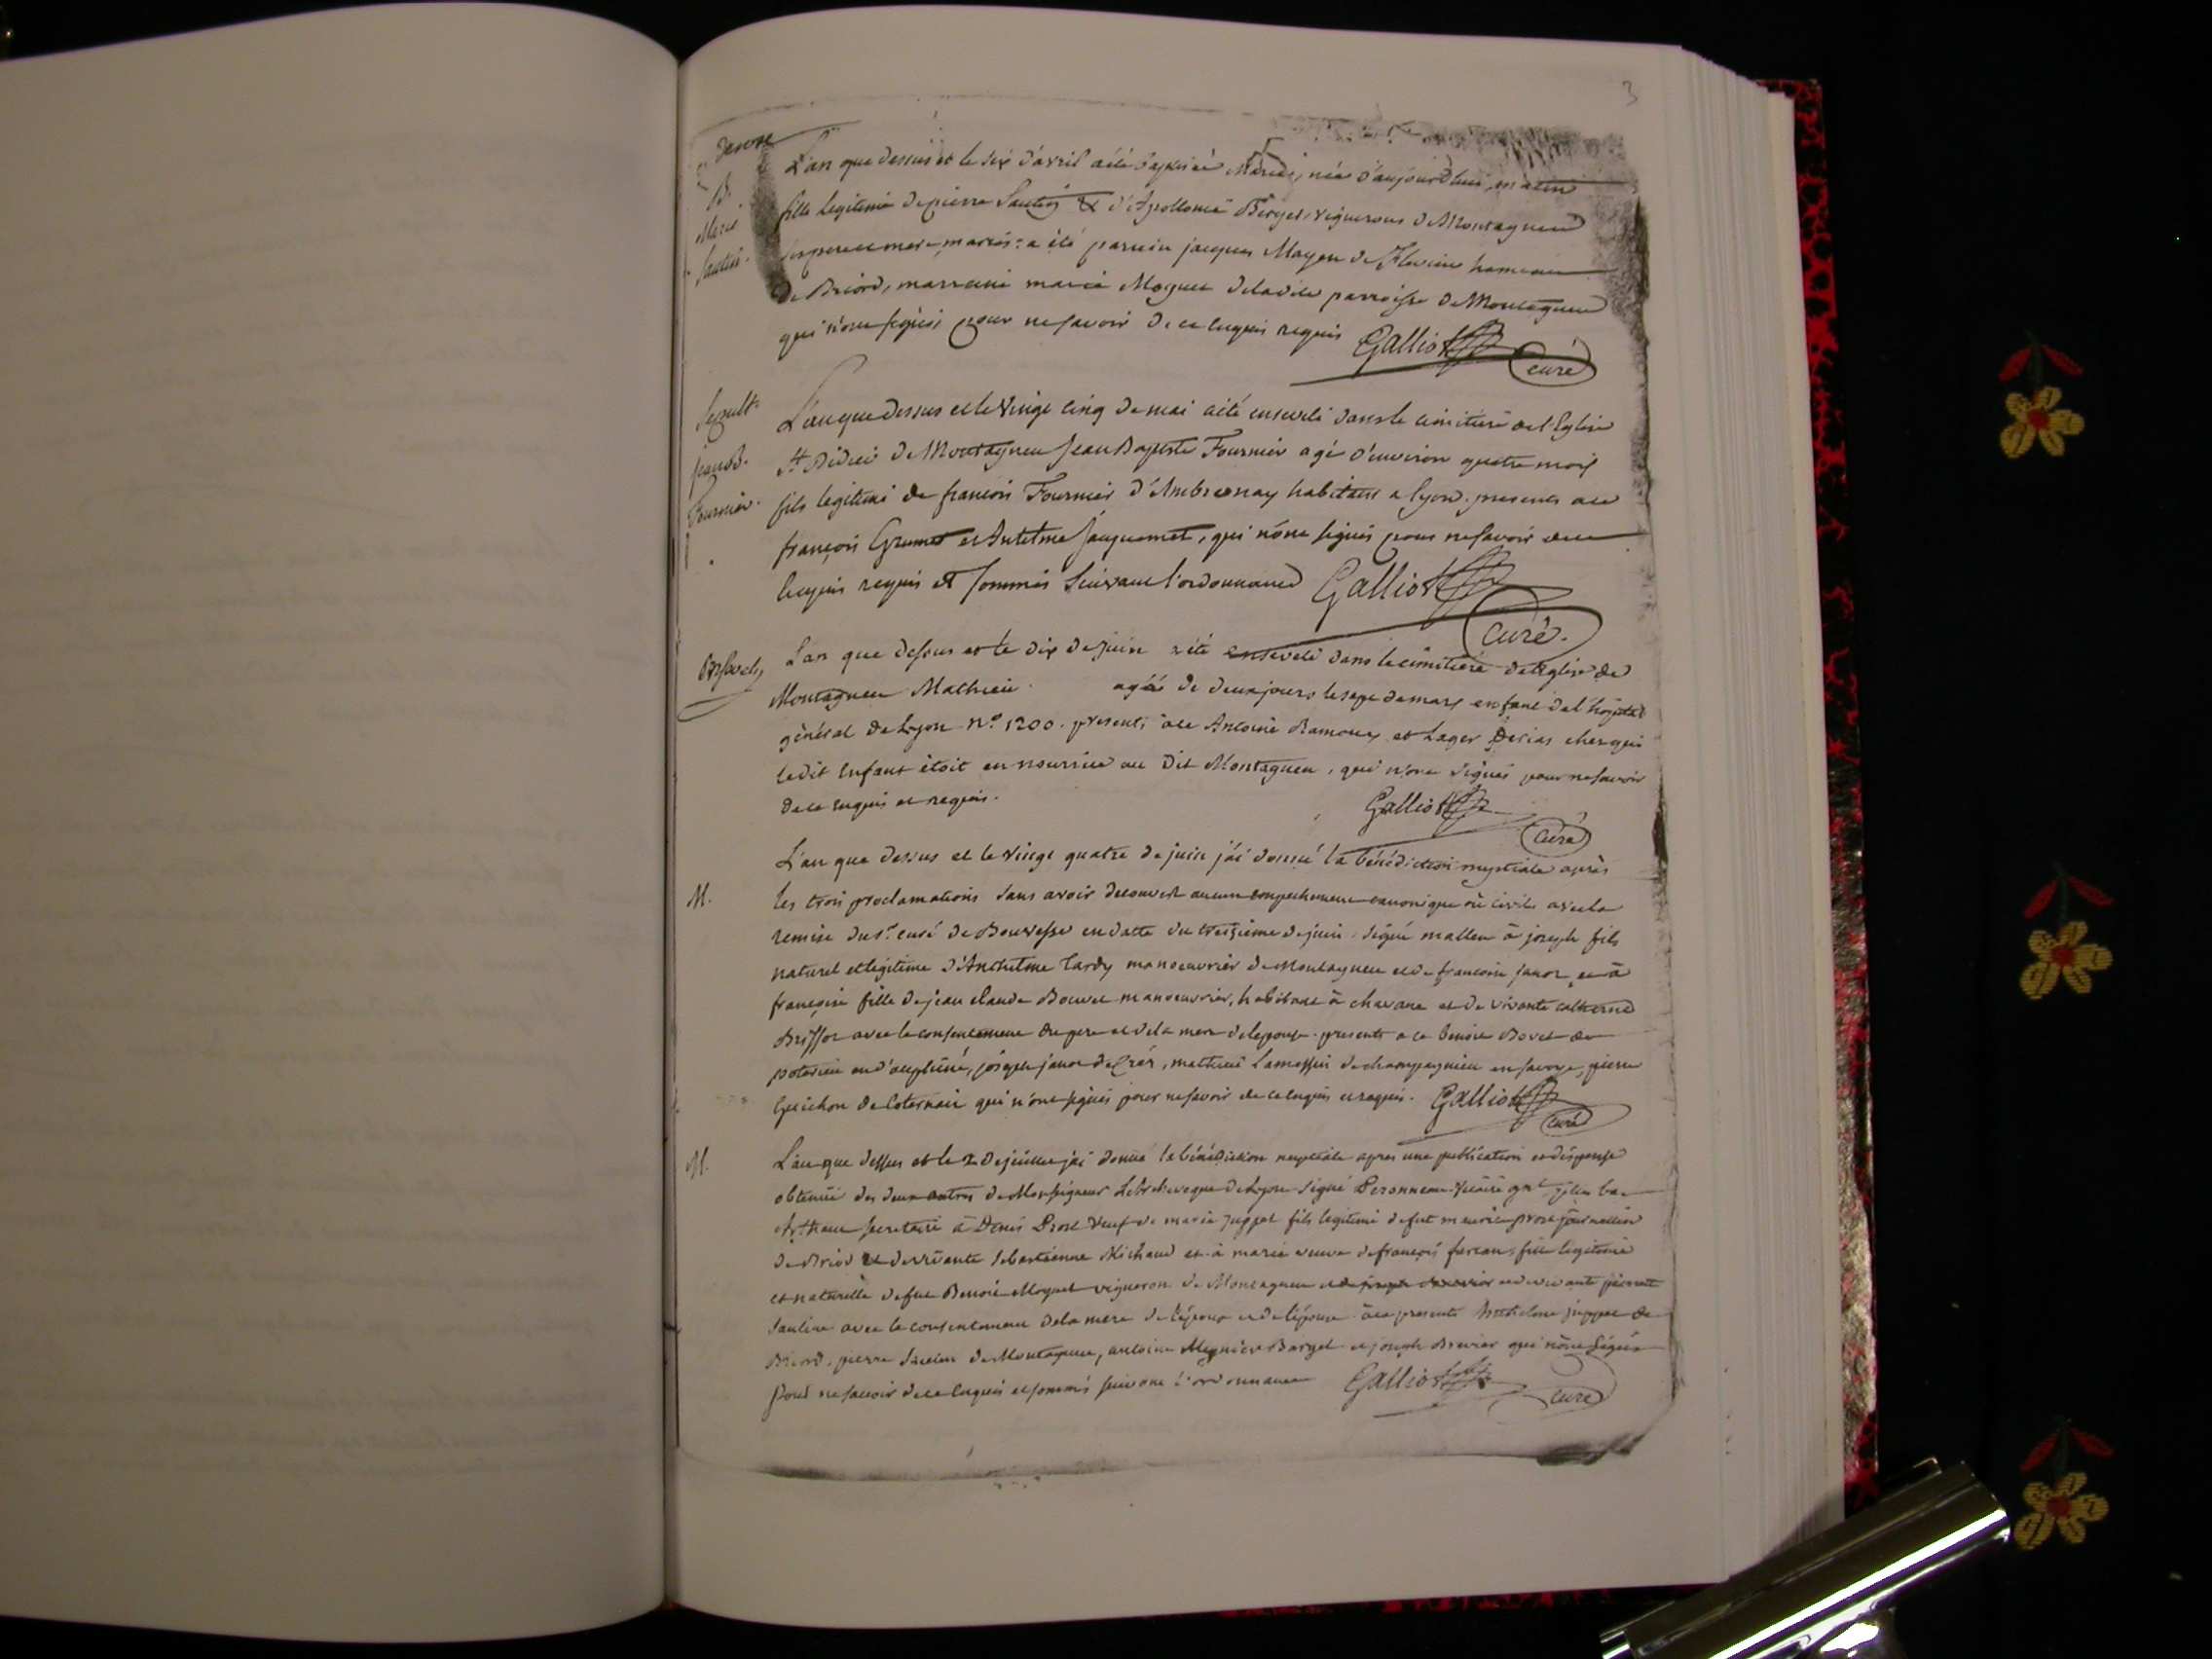 3
B.
Marie
Sautin.
L'an que dessus et le six d'avril a été baptisée Marie, née d'aujourd'hui matin
fille legitime de pierre Sautin & d'Apollonie Berger, vignerons de Montagneu
ses pere et mere mariés: a été parrein jacques Mayen de hameau
de Briord, marreine marie Moguet parroisse de Montagneu
qui n'ont signés pour ne savoir de ce enquis requis Galliot
curé
Sepult.
jean B.
Fournier.
L'an que dessus et le vingt cinq de mai a été enseveli dans le cimitiere de l'Eglise
St Didier de Montagneu Jean Baptiste Fournier agé d'environ quatre mois
fils legitime de francois Fournier d'Ambronay habitant a Lyon. presents a ce
françois Grumet et Antelme Jacquemet, qui n'ont signés pour ne savoir de ce
enquis requis et sommés suivant l'ordonnance Galliot
curé.
L'an que dessus et le dix de juin a été enseveli dans le cimitiere de l'Eglise de
Montagneu Mathieu agée de deux jours le sept de mars enfant de l'hôpital
général de Lyon No 1200. presents a ce Antoine Ramoux et Lager chez qui
le dit enfant étoit en nourrice au dit Montagneu, qui n'ont signés pour ne savoir
de ce enquis et requis. Galliot
curé
M.
L'an que dessus et le vingt quatre de juin j'ai donné la bénédiction nuptiale après
les trois proclamations sans avoir decouvert aucun empechement canonique ou civile avec la
remise du sr. curé de Bouvesse en datte du treizieme de juin signé mallen à joseph fils
naturel et legitime d'Anthelme tardy manoeuvrier de Montagneu et de francoise janot et à
françoise fille de jean claude Bouvet manoeuvrier, habitant à chavane et de vivante catherine
Brissot avec le consentement du pere et de la mere de l'epouse. presents a ce benoit Bovet de
en d'auphiné, joseph janot de mathieu Lamessin de champagnieu en savoye, pierre
Guichon de qui n'ont signés pour ne savoir de ce enquis et requis. Galliot
curé
M.
L'an que dessus et le 2 de juillet j'ai donné la bénédiction nuptiale apres une publication et dispense
obtenuë des deux autres de Monseigneur L'Archeveque de Lyon signé Peronneau Vicaire gnl
secretaire à Denis Prost veuf de marie juppet fils legitime de fut prost journallier
de Briord & de vivante sebastienne Michaud et à marie veuve de françois fille legitime
et naturelle de fut Benoit Moguet vigneron de Montagneu et de vivante
Sautin avec le consentement de la mere de l'epoux et de l'épouse. à ce presents Anthelme juppet de
Briord, pierre Sautin de Montagneu, antoine et joseph Brevier qui n'ont signés
pour ne savoir de ce enquis et sommés suivant l'ordonnance Galliot
curé